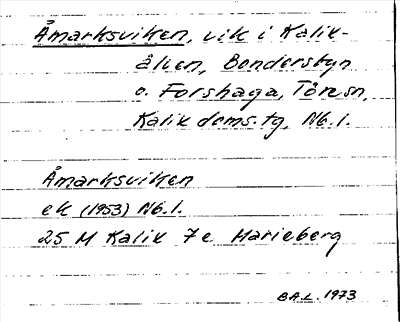 Åmarksviken, vik i Kalix-
älven, Bondersbyn
o. Forshaga, Töre sn,
Kalix doms.tg, Nb.l.
Åmarksviken
ek (1953) Nb.l.
25 M Kalix 7e Marieberg
B.A.L. 1973